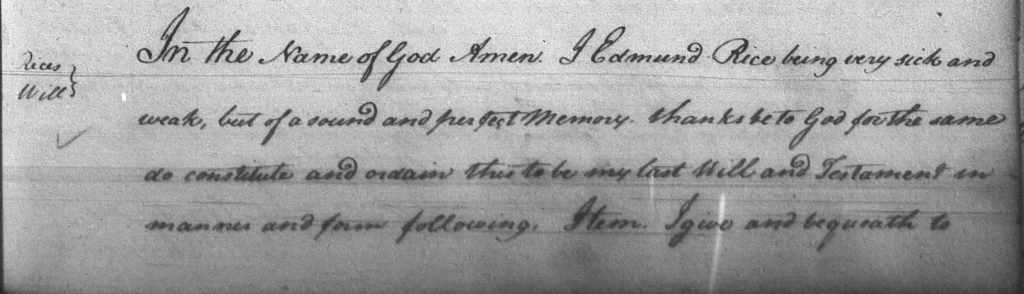 Rices
Will
In the Name of God Amen. I Edmund Rice being very sick and
weak, but of a sound and perfect Memory. thanks be to God for the same
do constitute and ordain this to be my last Will and Testament in
manner and form following. Item. I give and bequeath to